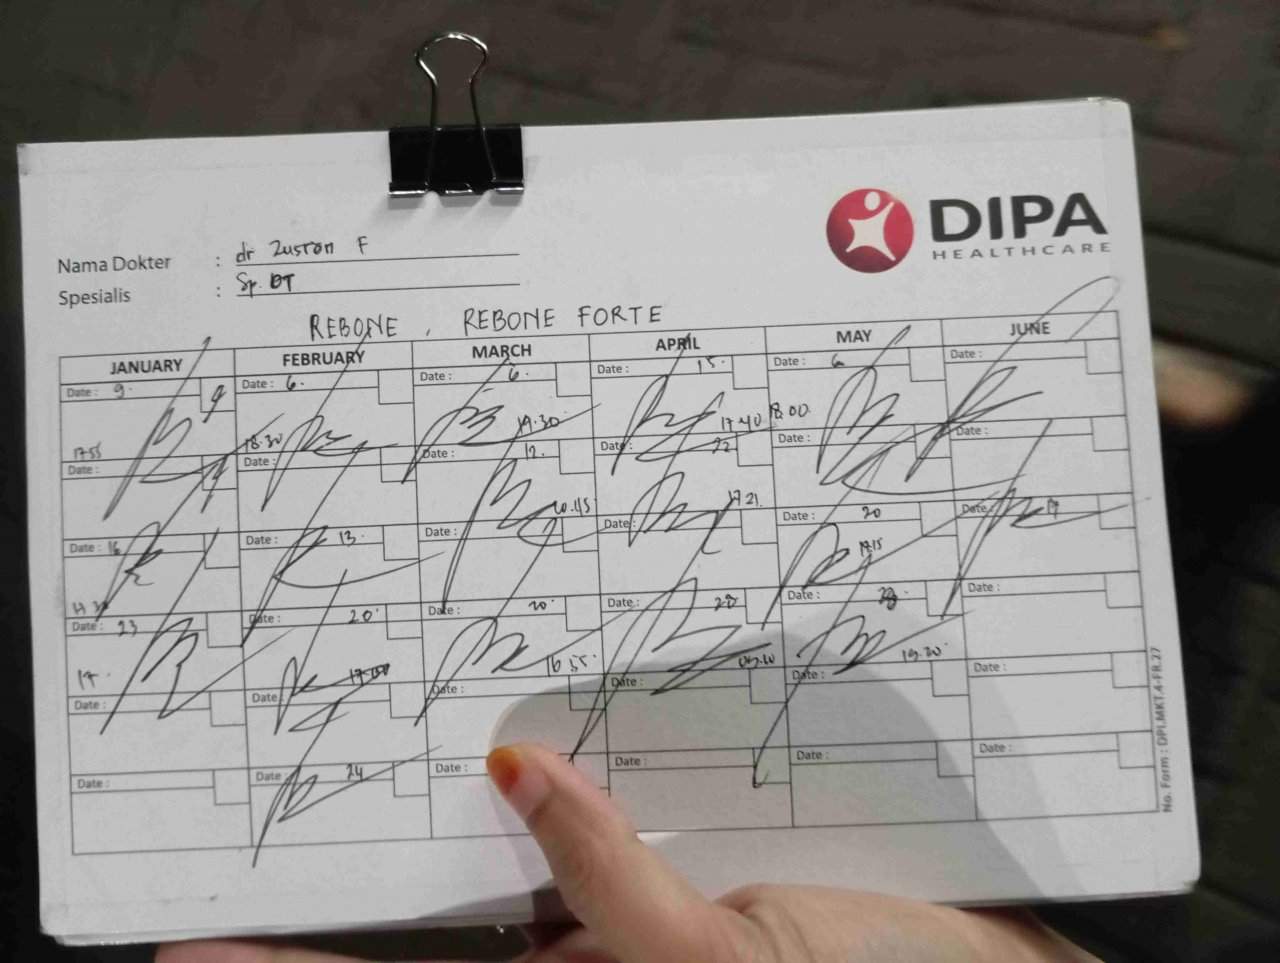 DIPA
HEALTHCARE
Nama Dokter : dr Zuston F
Spesialis : Sp. OT
REBONE , REBONE FORTE
JANUARY FEBRUARY MARCH APRIL MAY JUNE
Date : 9. Date : 6. Date : 6. Date : 15. Date : 6 Date :
1755 18.30 19.30 17 40 18.00
Date : Date : Date : 12. Date : 22 Date : Date :
17 21
Date : 16 Date : 13. Date : Date : Date : 20 Date : 17
Date : 23 Date : 20. Date : 20. Date : 28 Date : 28. Date :
17. 17.00 16 55 19.20
Date : Date : Date : Date : Date : Date :
Date : Date : 24 Date : Date : Date : Date :
No. Form : DPI.MKT.4-FR.27